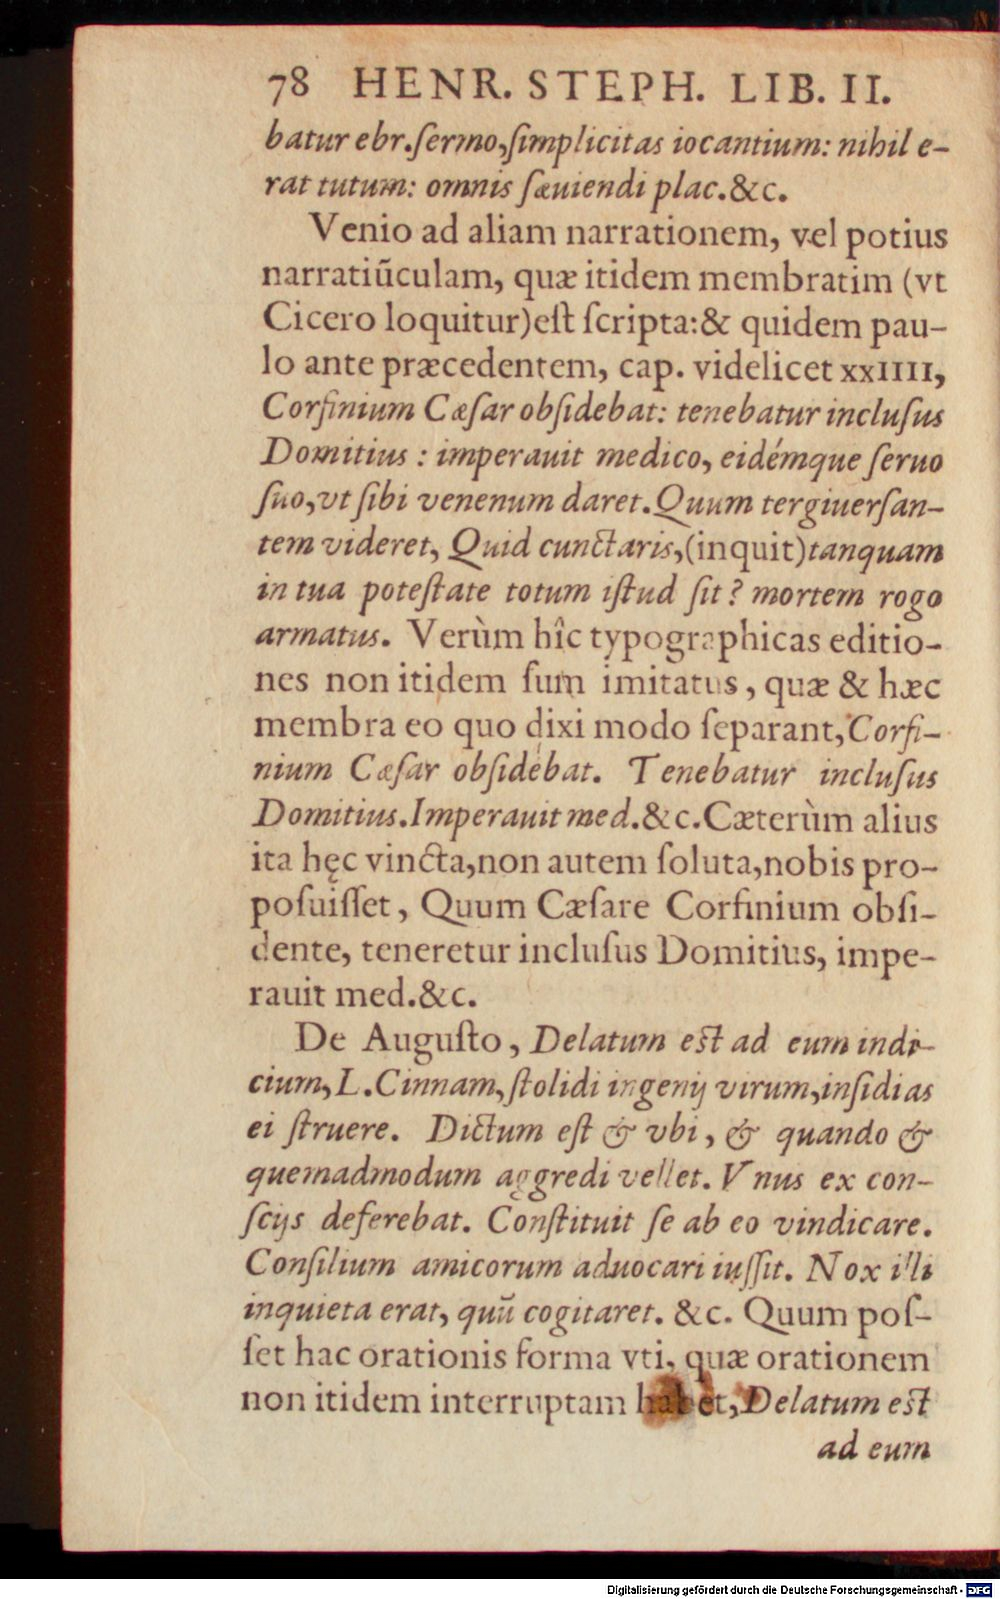 78 HENR. STEPH. LIB. II.
batur ebr.ſermo,ſimplicitas iocantium: nihil e-
rat tutum: omnis ſæuiendi plac.&c.
Venio ad aliam narrationem, vel potius
narratiũculam, quæ itidem membratim (vt
Cicero loquitur)eſt ſcripta:& quidem pau-
lo ante præcedentem, cap. videlicet xxIIII,
Corfinium Cæſar obſidebat: tenebatur incluſus
Domitius : imperauit medico, eidémque ſeruo
ſuo,vt ſibi venenum daret. Quum tergiuerſan-
tem videret, Quid cunctaris,(inquit)tanquam
in tua poteſtate totum iſtud ſit? mortem rogo
armatus. Verùm hîc typographicas editio-
nes non itidem ſum imitatus, quæ & hæc
membra eo quo dixi modo ſeparant, Corfi-
nium Cæſar obſidebat. Tenebatur incluſus
Domitius.Imperauit med.&c. Cæterùm alius
ita hęc vincta,non autem ſoluta,nobis pro-
poſuiſſet, Quum Cæſare Corfinium obſi-
dente, teneretur incluſus Domitius, impe-
rauit med.&c.
De Auguſto, Delatum eſt ad eum indi-
cium, L.Cinnam, ſtolidi ingenij virum,inſidias
ei ſtruere. Dictum eſt & vbi, & quando &
quemadmodum aggredi vellet. Vnus ex con-
ſcijs deferebat. Conſtituit ſe ab eo vindicare.
Conſilium amicorum aduocari iuſſit. Nox illi
inquieta erat, quũ cogitaret. &c. Quum poſ-
ſet hac orationis forma vti, quæ orationem
non itidem interruptam habet, Delatum eſt
ad eum
Digitalisierung gefördert durch die Deutsche Forschungsgemeinschaft - DFG